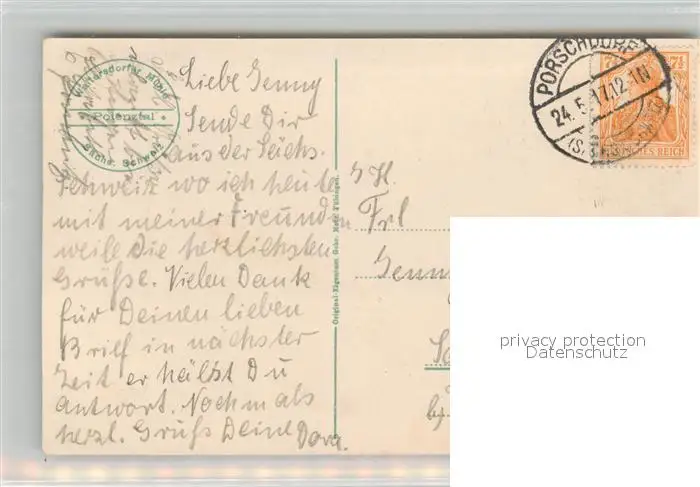 Waltersdorfer Mühle
Polenztal
Sächs. Schweiz
Liebe Jenny
Sende Dir
aus der Sächs.
Schweiz wo ich heute
mit meiner Freundin
weile die herzlichsten
Grüße. Vielen Dank
für Deinen lieben
Brief in nächster
Zeit erhälst Du
Antwort. Nochmals
herzl. Gruß Deine Dora.
PORSCHDORF
24.5.17.12-1N
DEUTSCHES REICH
7½
Frl
Jenny
privacy protection
Datenschutz